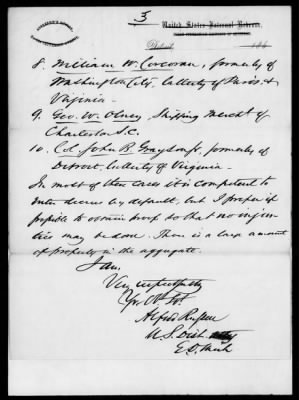 3
United States Internal Revenue,
Detroit, 186
8. William W. Corcoran, formerly of
Washington City, latterly of Paris &
Virginia.
9. Geo. W. Olney, Shipping Mercht of
Charleston S.C.
10. Col. John B. Grayson, formerly of
Detroit, latterly of Virginia.
In most of these cases it is competent to
enter decree by default, but I prefer if
possible to obtain proof so that no injus-
tice may be done. There is a large amount
of property in the aggregate.
I am,
Very respectfully
Yr. Ob. St.
Alfred Russell
U.S. Dist. Atty
E.D. Mich